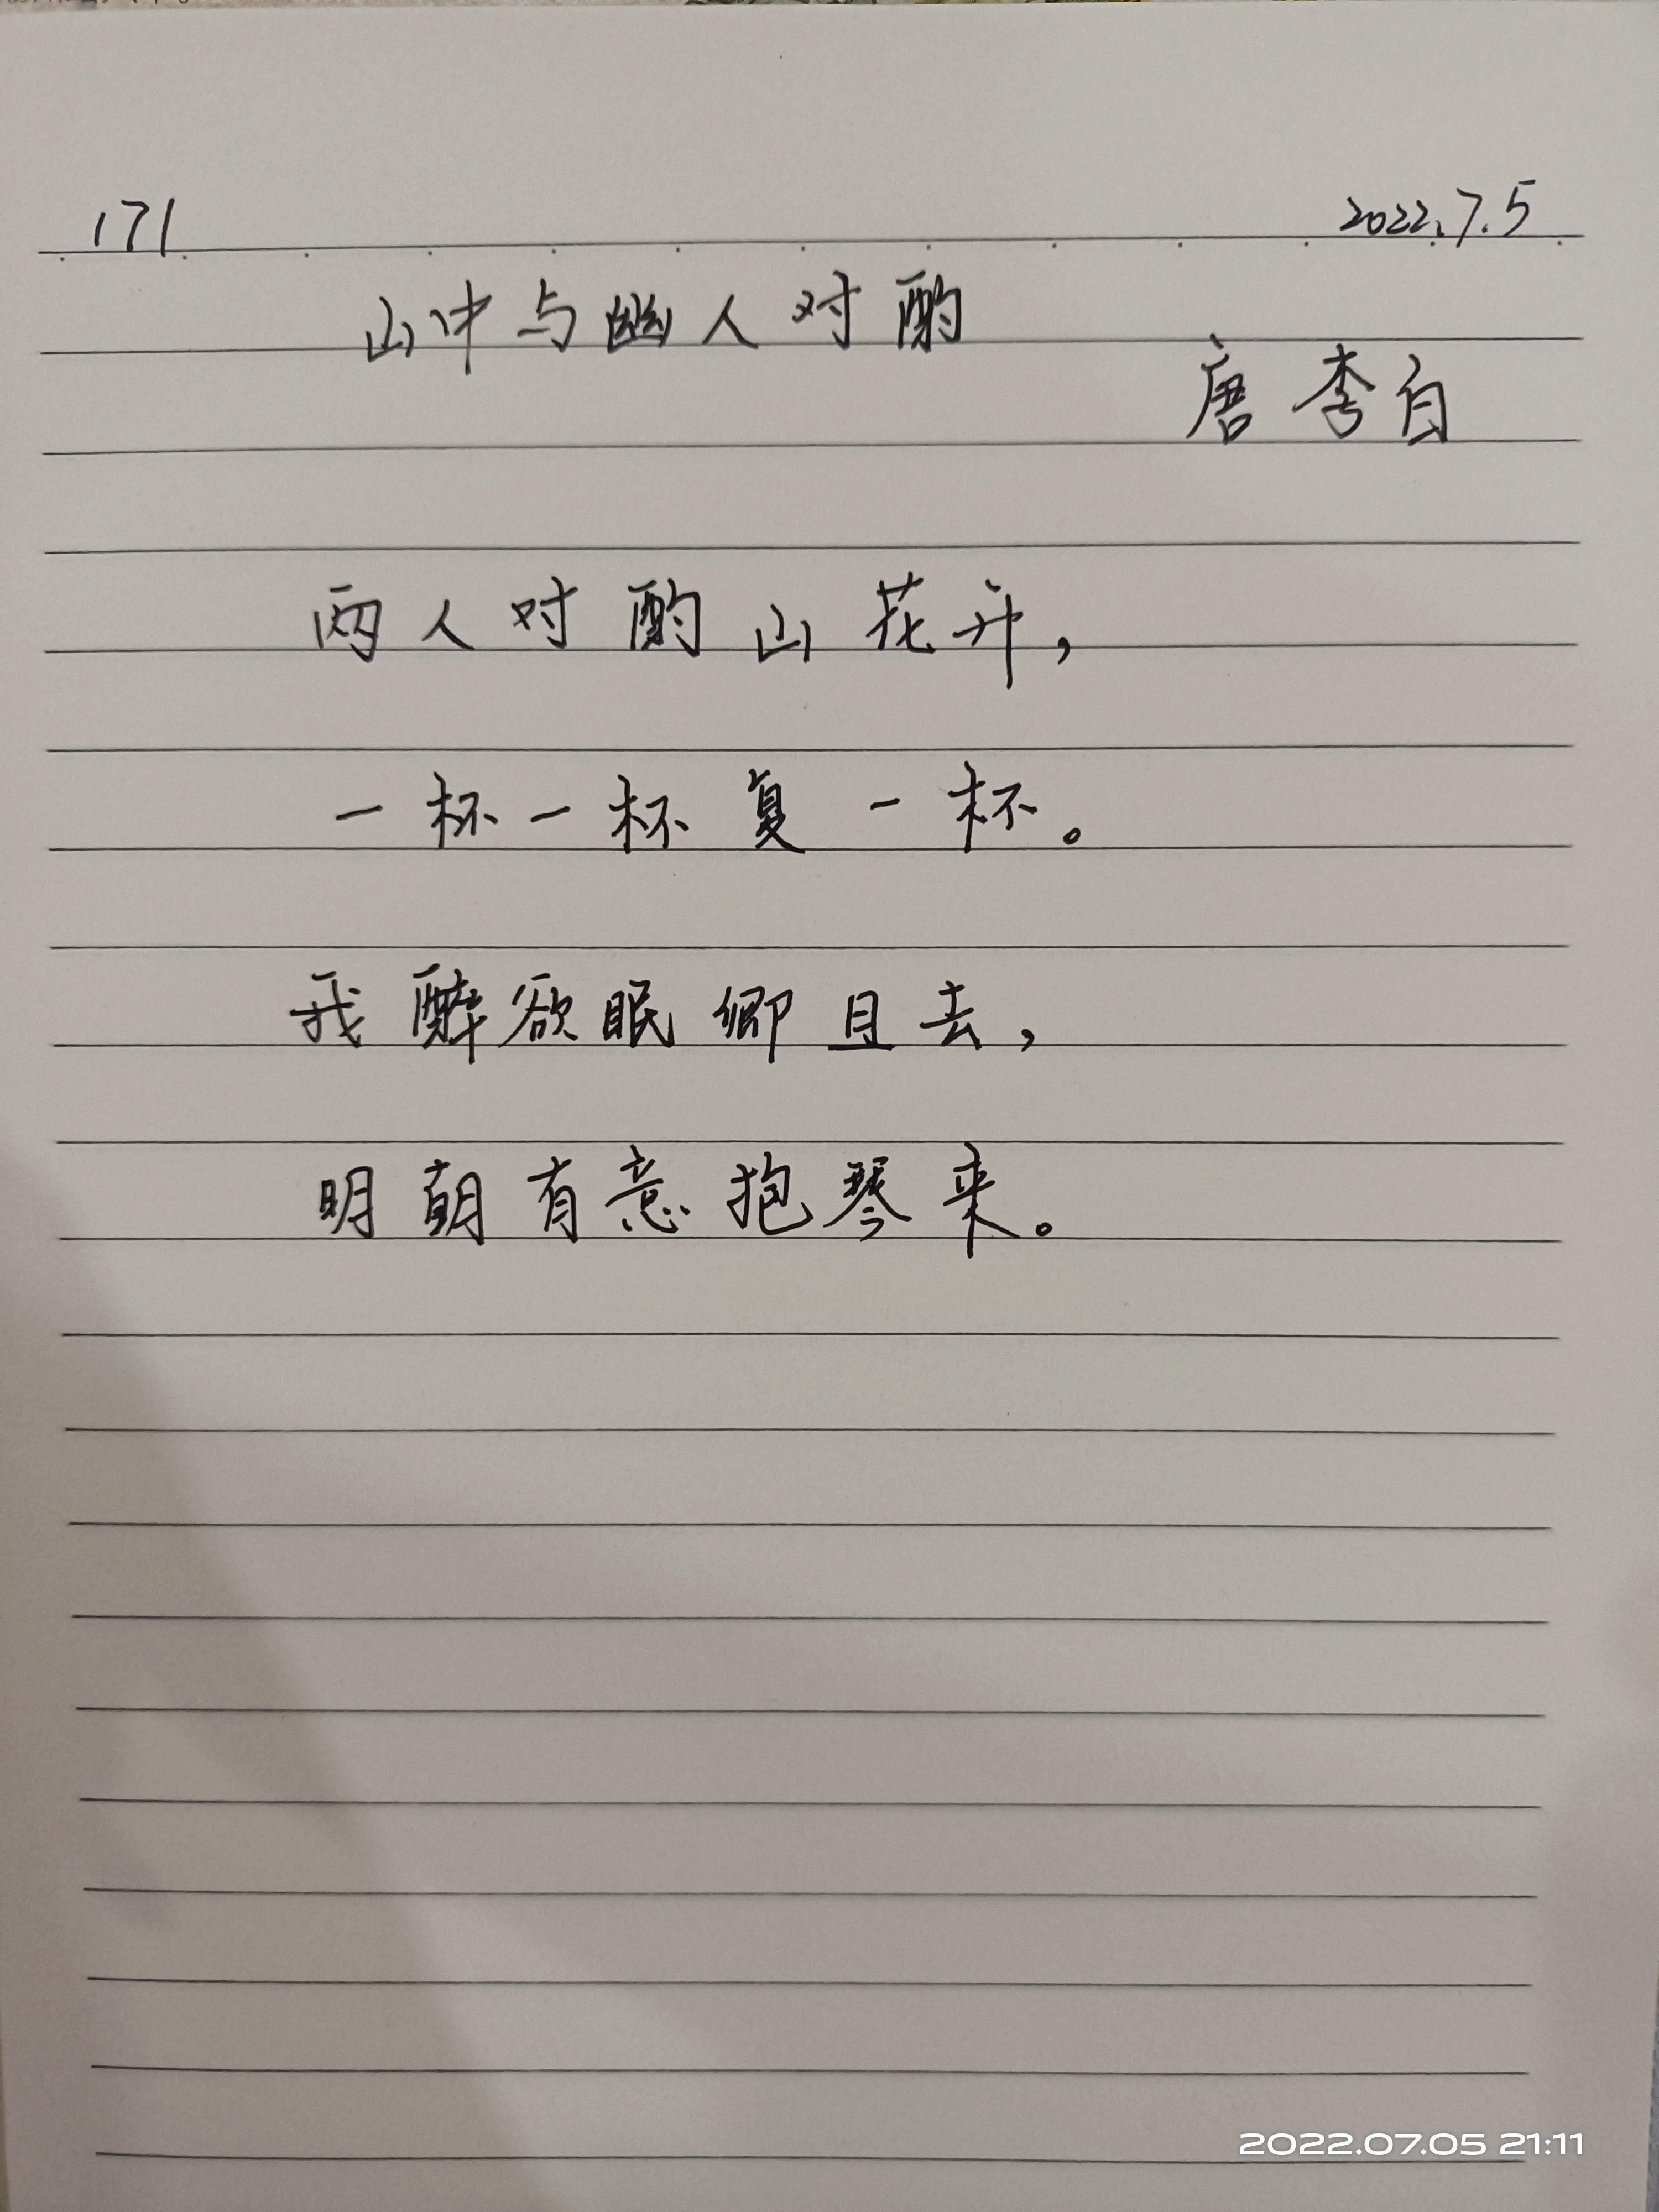 171 2022.7.5
山中与幽人对酌
唐 李白
两人对酌山花开，
一杯一杯复一杯。
我醉欲眠卿且去，
明朝有意抱琴来。
2022.07.05 21:11